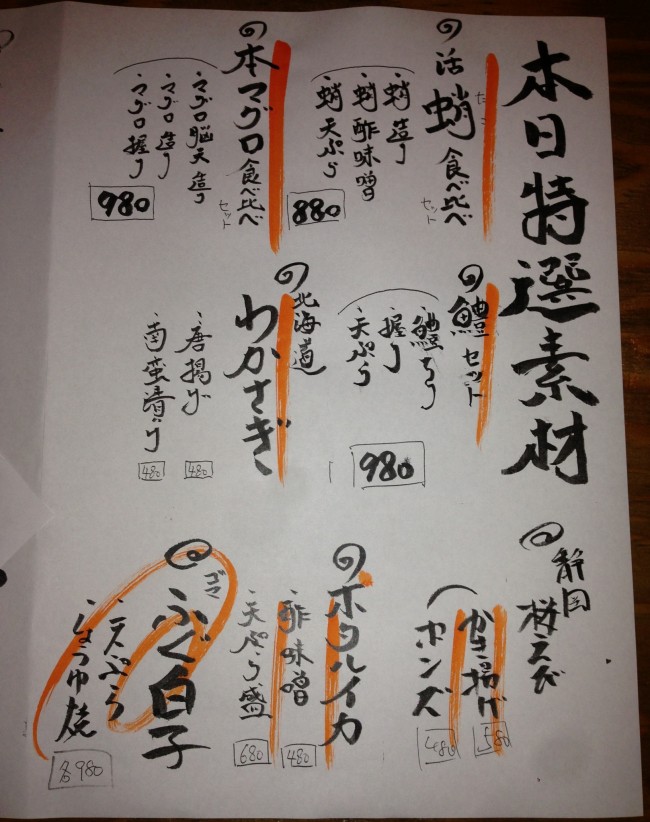 本日特選素材
活蛸食べ比べセット
たこ
・蛸造り
・蛸酢味噌
・蛸天ぷら
880
本マグロ食べ比べセット
・マグロ脳天造り
・マグロ造り
・マグロ握り
980
鱧セット
・鱧ちり
・握り
・天ぷら
980
北海道
わかさぎ
・唐揚げ
480
・南蛮漬け
480
静岡
桜えび
かき揚げ
580
ポンズ
480
ホタルイカ
酢味噌
480
天ぷら盛
680
ゴマ
ふぐ白子
・天ぷら
・しょうゆ焼
各980